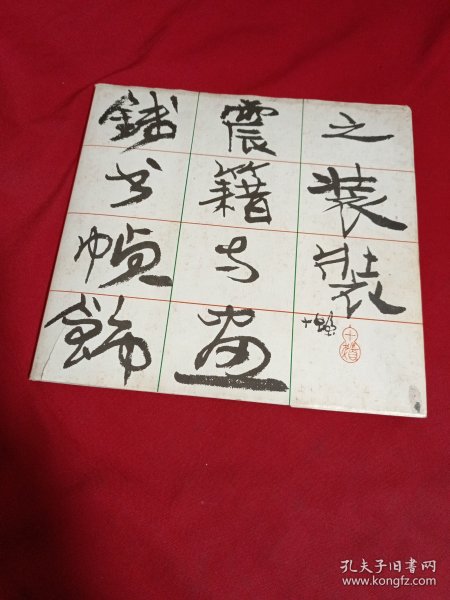 錢震之
书籍装
幀与裝
飾画
孔夫子旧书网
www.kongfz.com